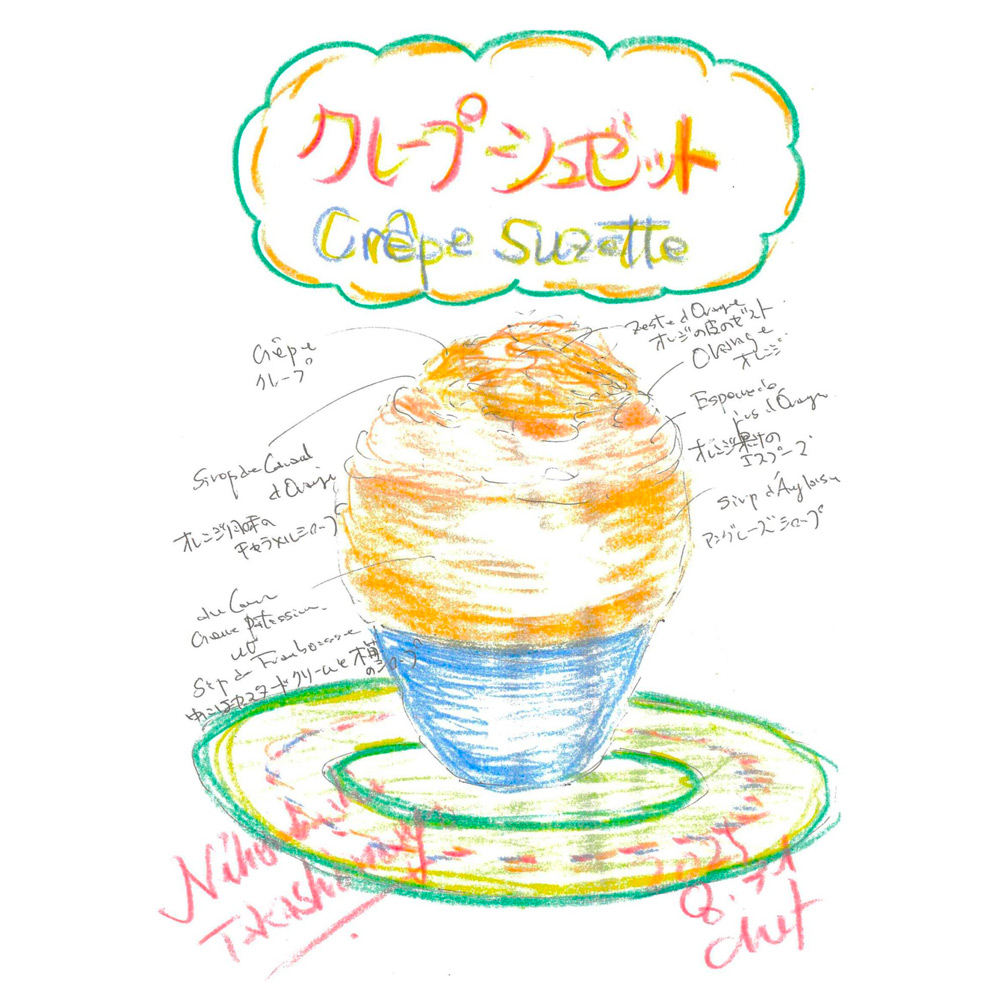 クレープシュゼット
Crêpe Suzette
Crêpe
クレープ
Zeste d'Orange
オレンジの皮のゼスト
Orange
オレンジ
Sirop de
d'Orange
オレンジ風味の
キャラメルシロップ
Espouma de
Jus d'Orange
オレンジ果汁の
エスプーマ
Sirop d'Anglaise
アングレーズシロップ
et
中にはカスタードクリームと苺
のシロップ
Nihonbashi
Takashimaya
chef